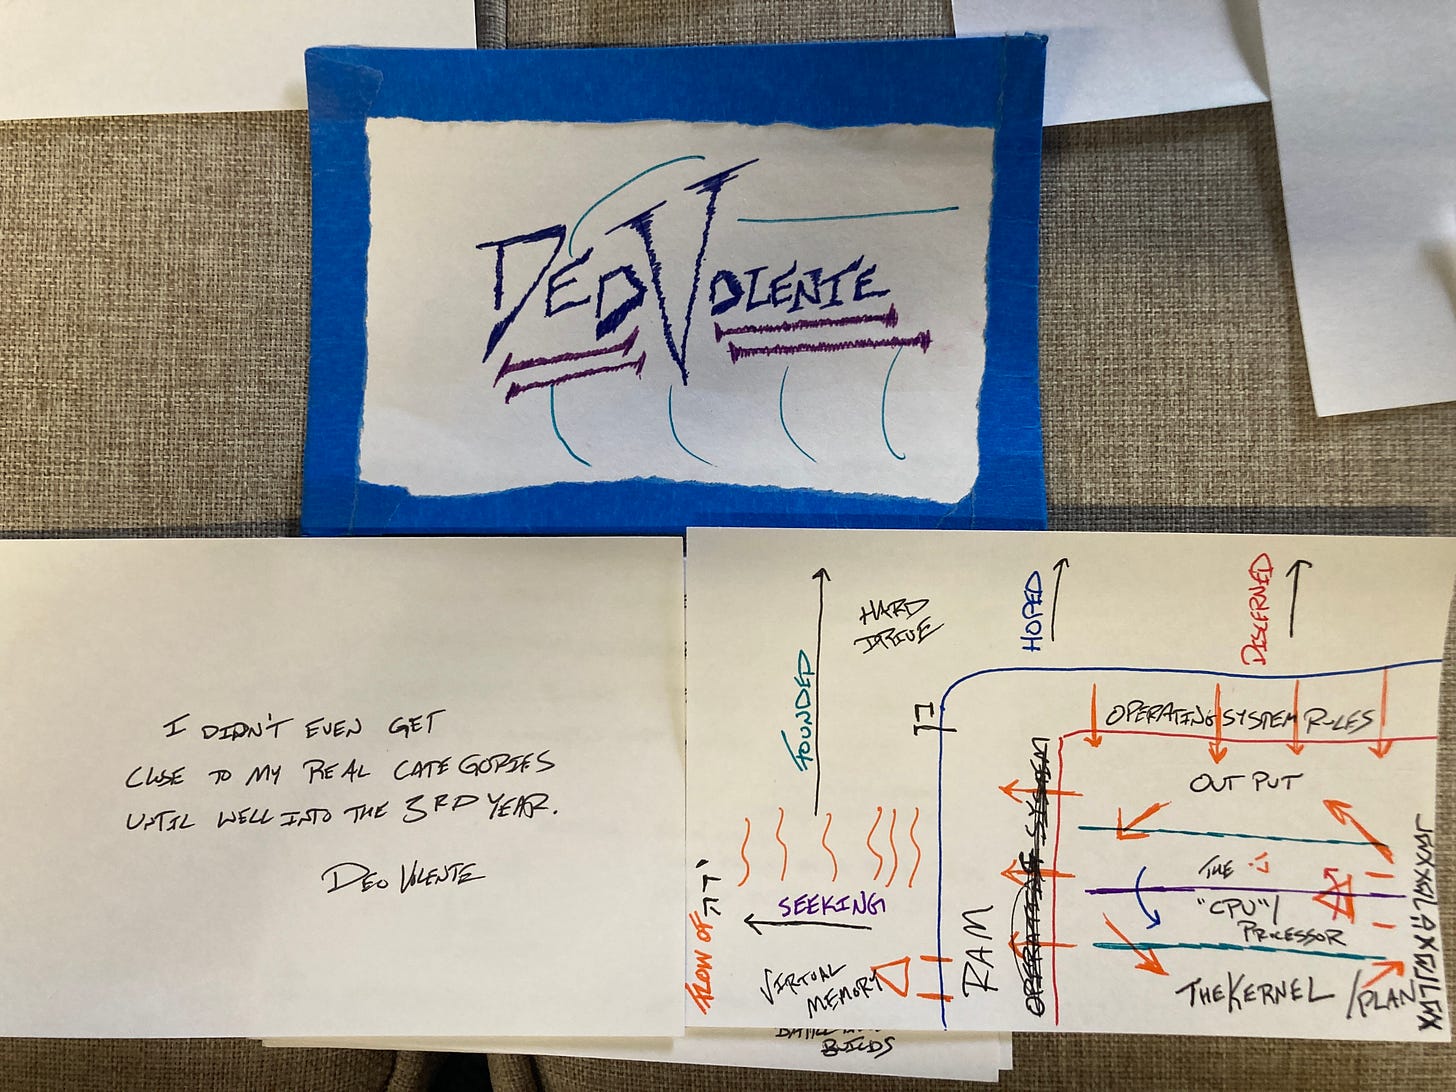 DEO VOLENTE
I DIDN'T EVEN GET
CLOSE TO MY REAL CATEGORIES
UNTIL WELL INTO THE 3RD YEAR.
DEO VOLENTE
FOUNDED
HARD
DRIVE
HOPED
DISCERNED
OPERATING SYSTEM RULES
OUTPUT
THE
"CPU"/
PROCESSOR
THE KERNEL /PLAN
OPERATING SYSTEM
RAM
SEEKING
VIRTUAL
MEMORY
FLOW OF
BUILDS